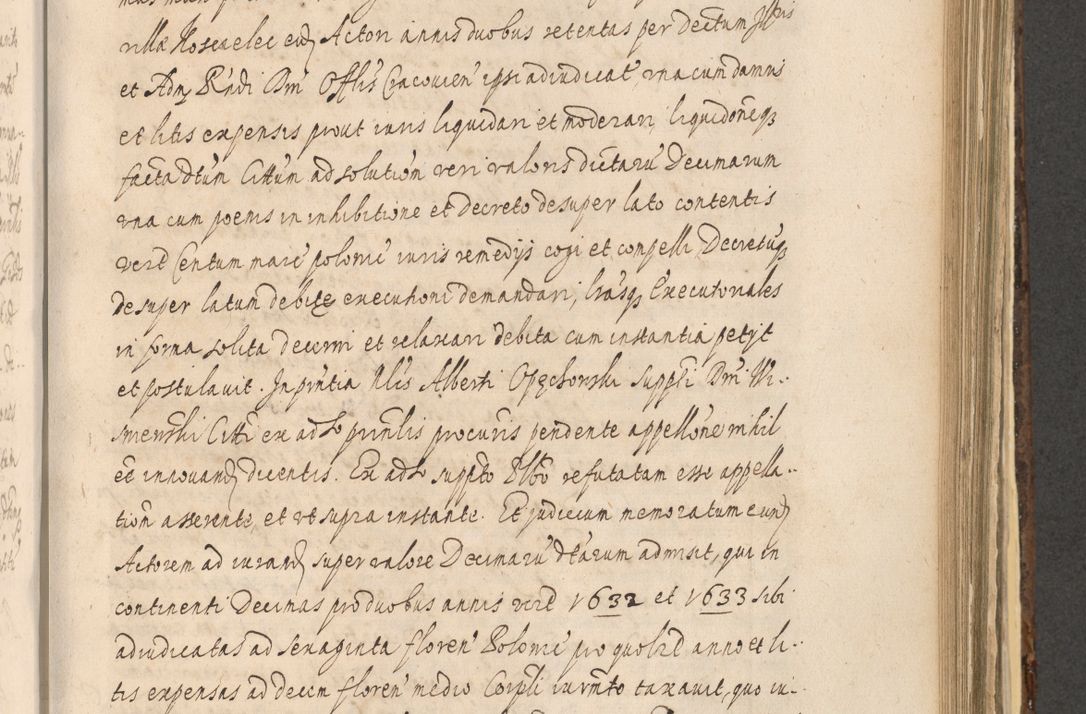 villæ Kosczelec eidem Actori annis duobus retentas per decretum Illris
et Adm R̃ndi Dni Offlis Cracovien̛ ipsi adiudicat̛ vna cum damnis
et litis expensis prout iuris liquidari et moderari, liquidoneq3
facta dtum Cittum ad solutiõn veri valoris dictarũ Decimarum
vna cum poenis in inhibitione et decreto desuper lato contentis
verẽ Centum marc̛ polonic̛ iuris remedijs cogi et compelli, Decretũq3
desuper latum debite executioni demandari, lrasq3 Executoriales
in forma solita decerni et relaxari debita cum instantia petijt
et postulavit. In pñtia Nlis Alberti Opęchowski suppti Dni Wi-
snienski Citti ex adso prinlis procuris pendente appellõne nihil
ẽe innouand dicentis. Ex adso suppto Dłbo refutatam esse appella-
tiõn asserente, et vt supra instante. Et judicium memoratum eund
Actorem ad iurand super valore Decimarũ dtarum admisit, qui in
continenti Decimas pro duobus annis verẽ 1632 et 1633 sibi
adiudicatas ad sexaginta floren̛ Polonic̛ pro quolẽt anno et li-
tis expensas ad decem floren̛ medio Corpli iurmto taxauit, quo iu-